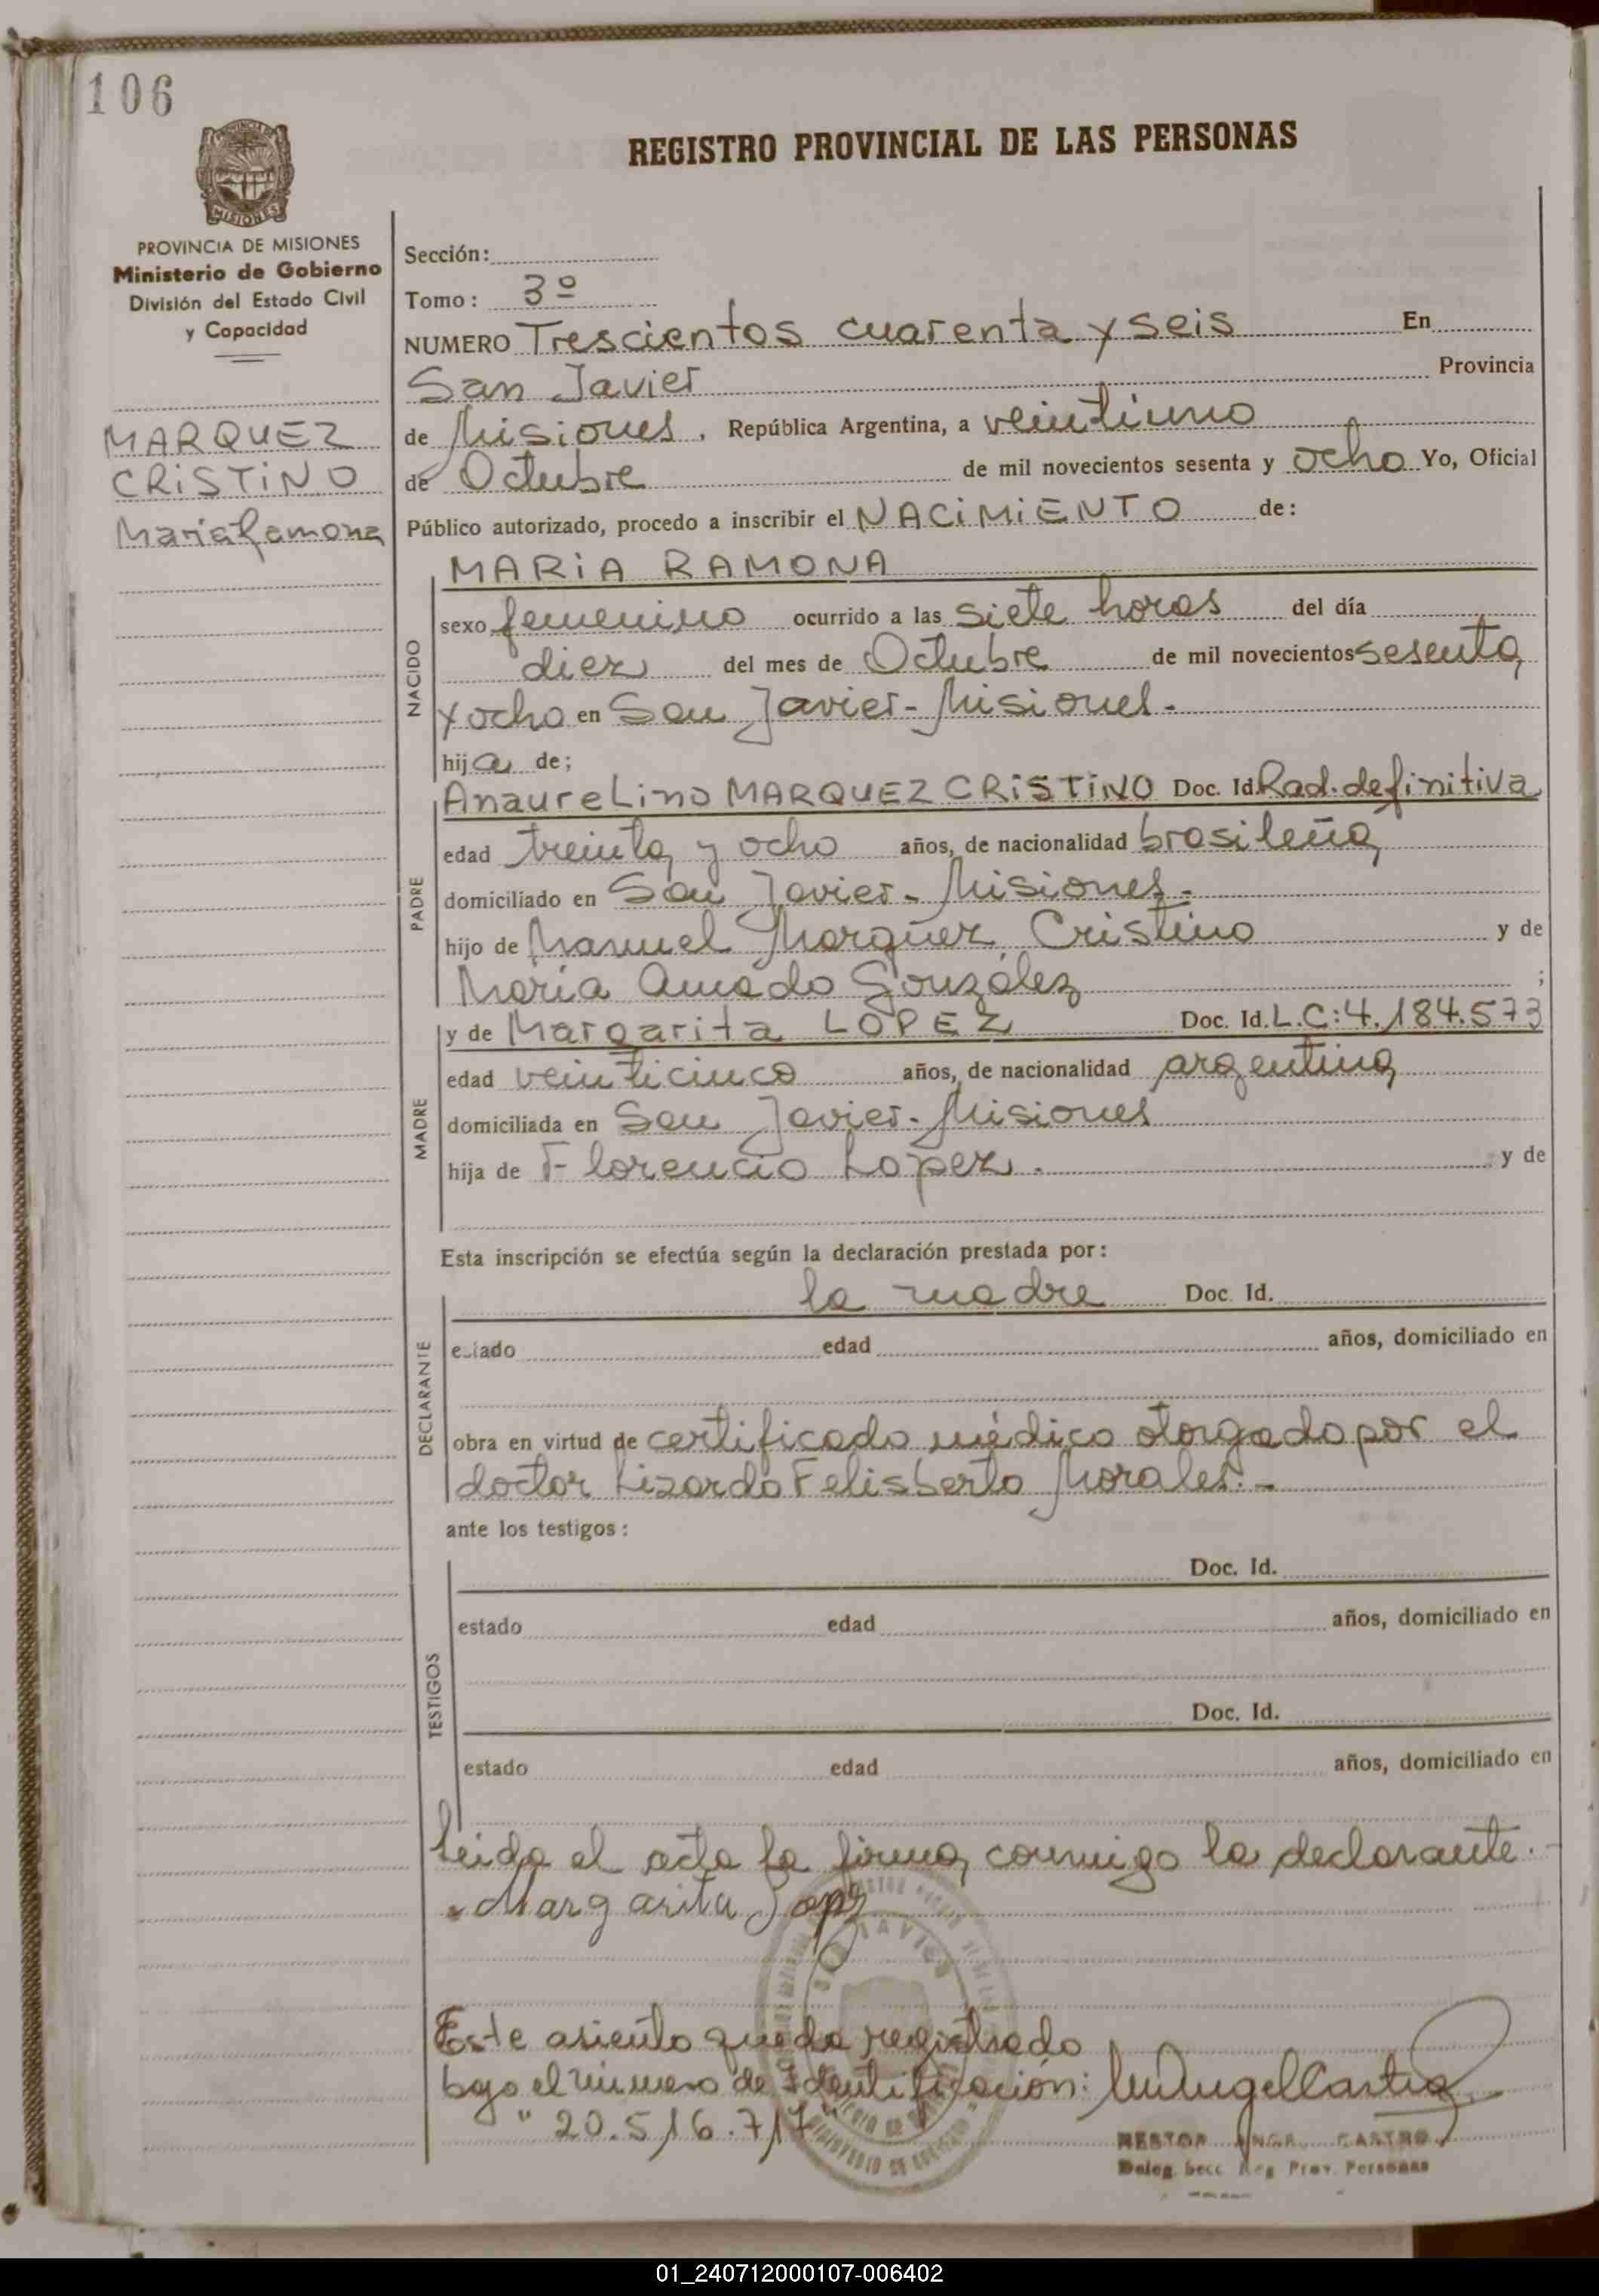 106
REGISTRO PROVINCIAL DE LAS PERSONAS
PROVINCIA DE MISIONES
MISIONES
PROVINCIA DE MISIONES
Ministerio de Gobierno
División del Estado Civil
y Capacidad
MARQUEZ
CRISTINO
Maria Ramona
Sección:
Tomo: 3º
NUMERO Trescientos cuarenta y seis En
San Javier Provincia
de Misiones, República Argentina, a veintiuno
de Octubre de mil novecientos sesenta y ocho Yo, Oficial
Público autorizado, procedo a inscribir el NACIMIENTO de:
NACIDO
MARIA RAMONA
sexo femenino ocurrido a las siete horas del día
diez del mes de Octubre de mil novecientos sesenta
y ocho en San Javier - Misiones.-
hija de;
PADRE
Anaurelino MARQUEZ CRISTINO Doc. Id. Rad. definitiva
edad treinta y ocho años, de nacionalidad brasileña
domiciliado en San Javier - Misiones.-
hijo de Manuel Marquez Cristino y de
María Amado González ;
MADRE
y de Margarita LOPEZ Doc. Id. L.C: 4.184.573
edad veinticinco años, de nacionalidad argentina
domiciliada en San Javier - Misiones
hija de Florencio Lopez. y de
Esta inscripción se efectúa según la declaración prestada por:
DECLARANTE
la madre Doc. Id.
estado edad años, domiciliado en
obra en virtud de certificado médico otorgado por el
doctor Lizardo Felisberto Morales.-
ante los testigos:
TESTIGOS
Doc. Id.
estado edad años, domiciliado en
Doc. Id.
estado edad años, domiciliado en
Leida el acta la firma conmigo la declarante.-
Margarita Lopez
Este asiento queda registrado
bajo el número de Identificación:
"20.516.717"
NESTOR ANGEL CASTRO
Deleg. Secc. Reg. Prov. Personas
01_240712000107-006402